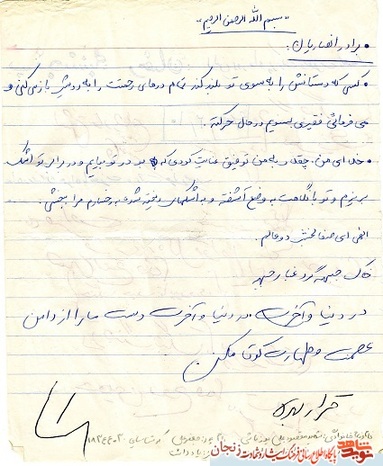 بسم الله الرحمن الرحیم
برادر انصاریان:
• کسی که دستانش را به سوی تو بلند کند تمام درهای رحمت را به رویش باز می‌کنی و
می فرمائی فقیری بسویم در حال حرکته.
• خدای من. چقدر به من توفیق عنایت کردی که به در تو بیایم و در برابر تو اشک
بریزم و تو با نگاهت به وضع آشفته و به اشکهای ریخته شده به رخسارم مرا ببخشی.
الهی ای صفا بخش دو عالم.
خاک جبهه گرد غبار جبهه
در دنیا و آخرت در دنیا و آخرت دست ما را از دامن
عصمت و طهارت کوتاه مکن
نوید شاهد
پایگاه اطلاع رسانی فرهنگ ایثار و شهادت زنجان